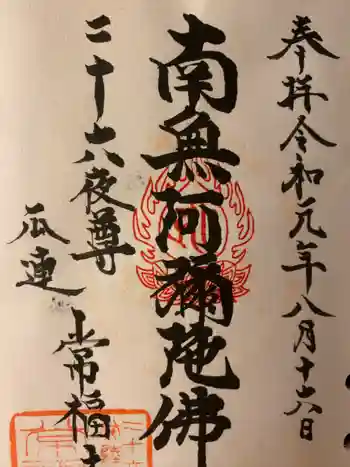 奉拝令和元年八月十六日
南無阿彌陀佛
二十六夜尊
瓜連
常福寺